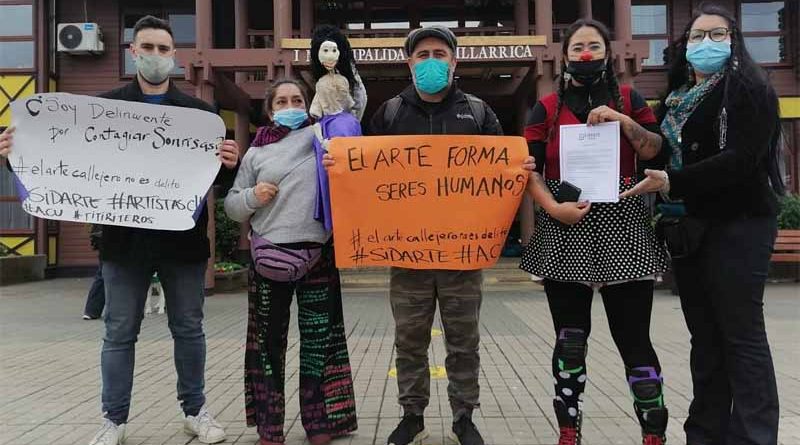 I MUNICIPALIDAD VILLARRICA
¿Soy Delincuente
por Contagiar Sonrisas?
#elartecallejeronoesdelito
#SIDARTE #ARTISTASCL
#ACU #TITIRITEROS
EL ARTE FORMA
SERES HUMANOS
#elartecallejeronoesdelito
#SIDARTE #ACU